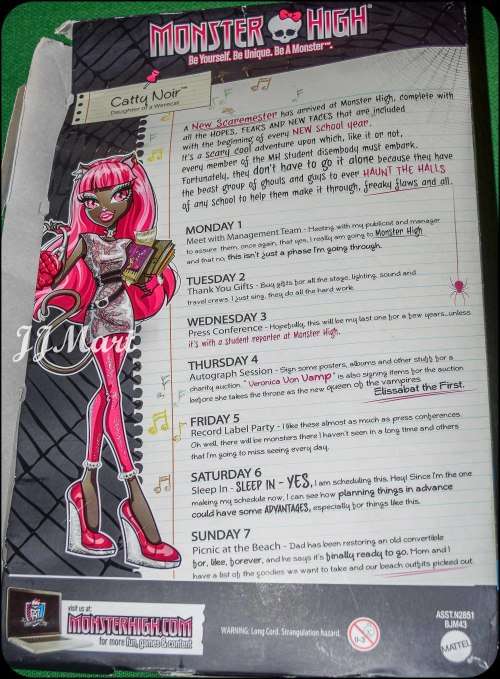 MONSTER HIGH
Be Yourself. Be Unique. Be A Monster™.
Catty Noir™
Daughter of a Werecat
A New Scaremester has arrived at Monster High, complete with
all the HOPES, FEARS AND NEW FACES that are included
with the beginning of every NEW school year.
It's a scary cool adventure upon which, like it or not,
every member of the MH student disembody must embark.
Fortunately, they don't have to go it alone because they have
the beast group of ghouls and guys to ever HAUNT THE HALLS
of any school to help them make it through, freaky flaws and all.
MONDAY 1
Meet with Management Team - Meeting with my publicist and manager
to assure them, once again, that yes, I really am going to Monster High
and that no, this isn't just a phase I'm going through.
TUESDAY 2
Thank You Gifts - Buy gifts for all the stage, lighting, sound and
travel crews. I just sing, they do all the hard work.
WEDNESDAY 3
Press Conference - Hopefully, this will be my last one for a few years...unless
it's with a student reporter at Monster High.
THURSDAY 4
Autograph Session - Sign some posters, albums and other stuff for a
charity auction. "Veronica Von Vamp" is also signing items for the auction
before she takes the throne as the new queen of the vampires
Elissabat the First.
FRIDAY 5
Record Label Party - I like these almost as much as press conferences.
Oh well, there will be monsters there I haven't seen in a long time and others
that I'm going to miss seeing every day.
SATURDAY 6
Sleep In - SLEEP IN - YES, I am scheduling this. Hey! Since I'm the one
making my schedule now, I can see how planning things in advance
could have some ADVANTAGES, especially for things like this.
SUNDAY 7
Picnic at the Beach - Dad has been restoring an old convertible
for, like, forever, and he says it's finally ready to go. Mom and I
have a list of the goodies we want to take and our beach outfits picked out.
JJMart
visit us at:
MONSTERHIGH.COM
for more fun, games & content
WARNING: Long Cord. Strangulation hazard.
0-3
ASST.N2851
BJM43
MATTEL